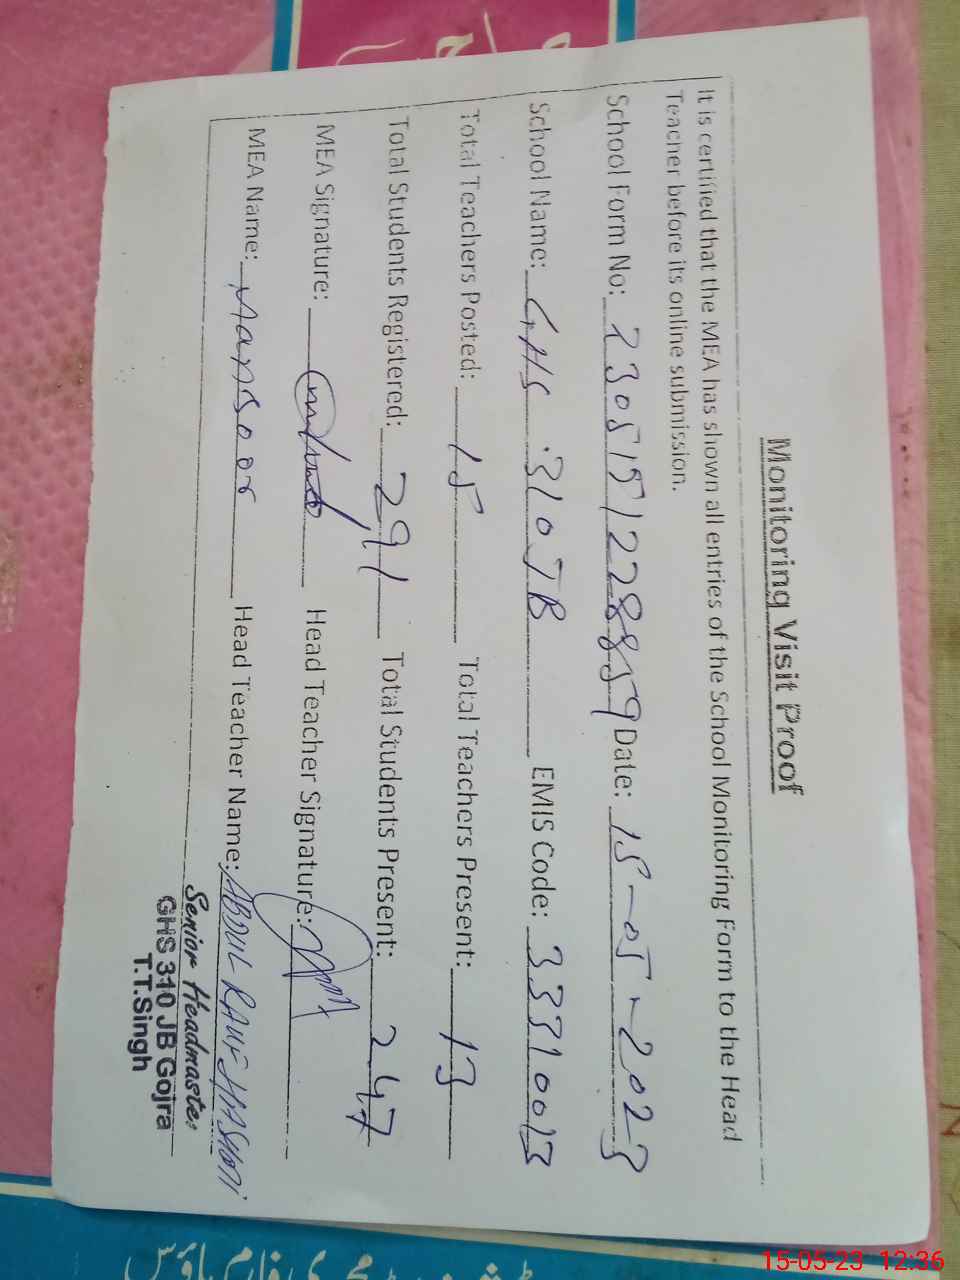 Monitoring Visit Proof
It is certified that the MEA has shown all entries of the School Monitoring Form to the Head
Teacher before its online submission.
School Form No: 2305151228859 Date: 15-05-2023
School Name: GHS 310 JB EMIS Code: 33310013
Total Teachers Posted: 15 Total Teachers Present: 13
Total Students Registered: 291 Total Students Present: 247
MEA Signature: Head Teacher Signature:
MEA Name: Mansoor Head Teacher Name: ABDUL RAUF HASHMI
Senior Headmaster
GHS 310 JB Gojra
T.T.Singh
15-05-23 12:36